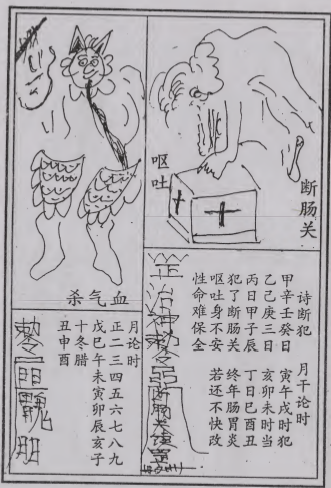 断肠关
呕吐
诗断犯 月干论时
甲辛壬癸日 寅午戌时犯
乙己庚三日 亥卯未时当
丙日甲子辰 丁日巳酉丑
犯了断肠关 终年肠胃炎
呕吐身不安 若还不快改
性命难保全
血气杀
月论时
正二三四五六七八九
戌巳午未寅卯辰亥子
十冬腊
丑申酉